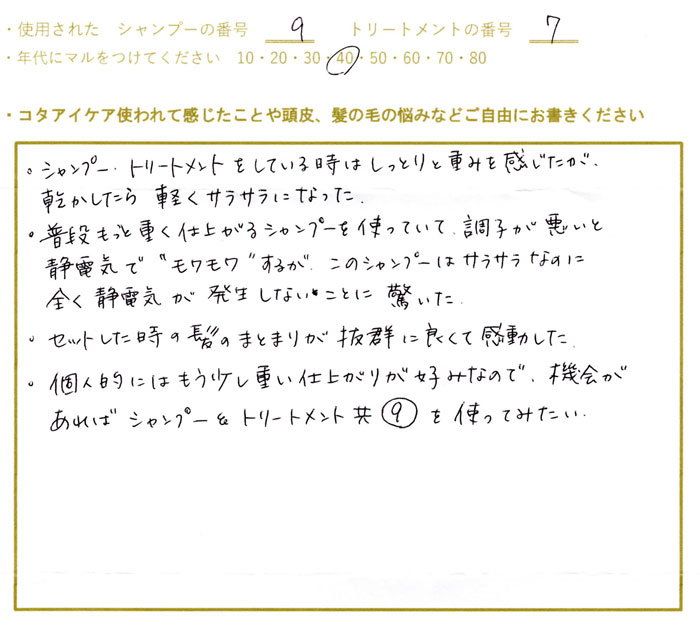 ・使用された シャンプーの番号 9 トリートメントの番号 7
・年代にマルをつけてください 10・20・30・40・50・60・70・80
・コタアイケア使われて感じたことや頭皮、髪の毛の悩みなどご自由にお書きください
・シャンプー・トリートメントをしている時はしっとりと重みを感じたが、
乾かしたら 軽くサラサラになった.
・普段もっと重く仕上がるシャンプーを使っていて、調子が悪いと
静電気で"モワモワ"するが、このシャンプーはサラサラなのに
全く静電気が発生しないことに驚いた.
・セットした時の髪のまとまりが抜群に良くて感動した.
・個人的にはもう少し重い仕上がりが好みなので、機会が
あればシャンプー&トリートメント共⑨を使ってみたい.